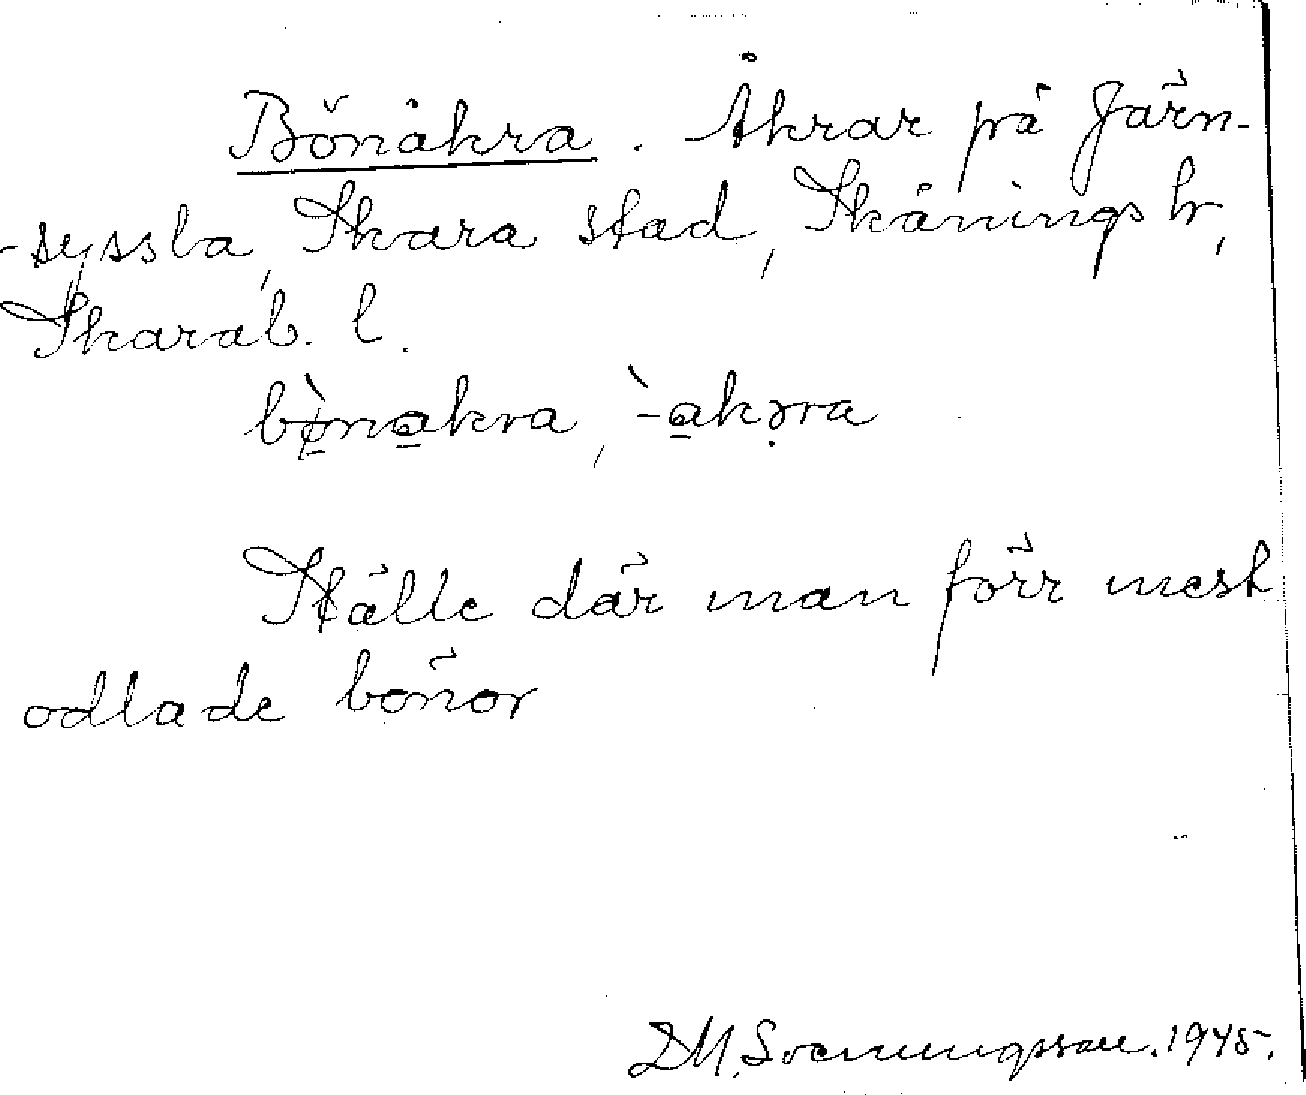 Bönåkra. Åkrar på Järn-
-syssla, Skara stad, Skånings hr,
Skarab. l.
bø̀nakra, ̀-akərra
Ställe där man förr mest
odlade bönor
DM. Svenningsson. 1945.